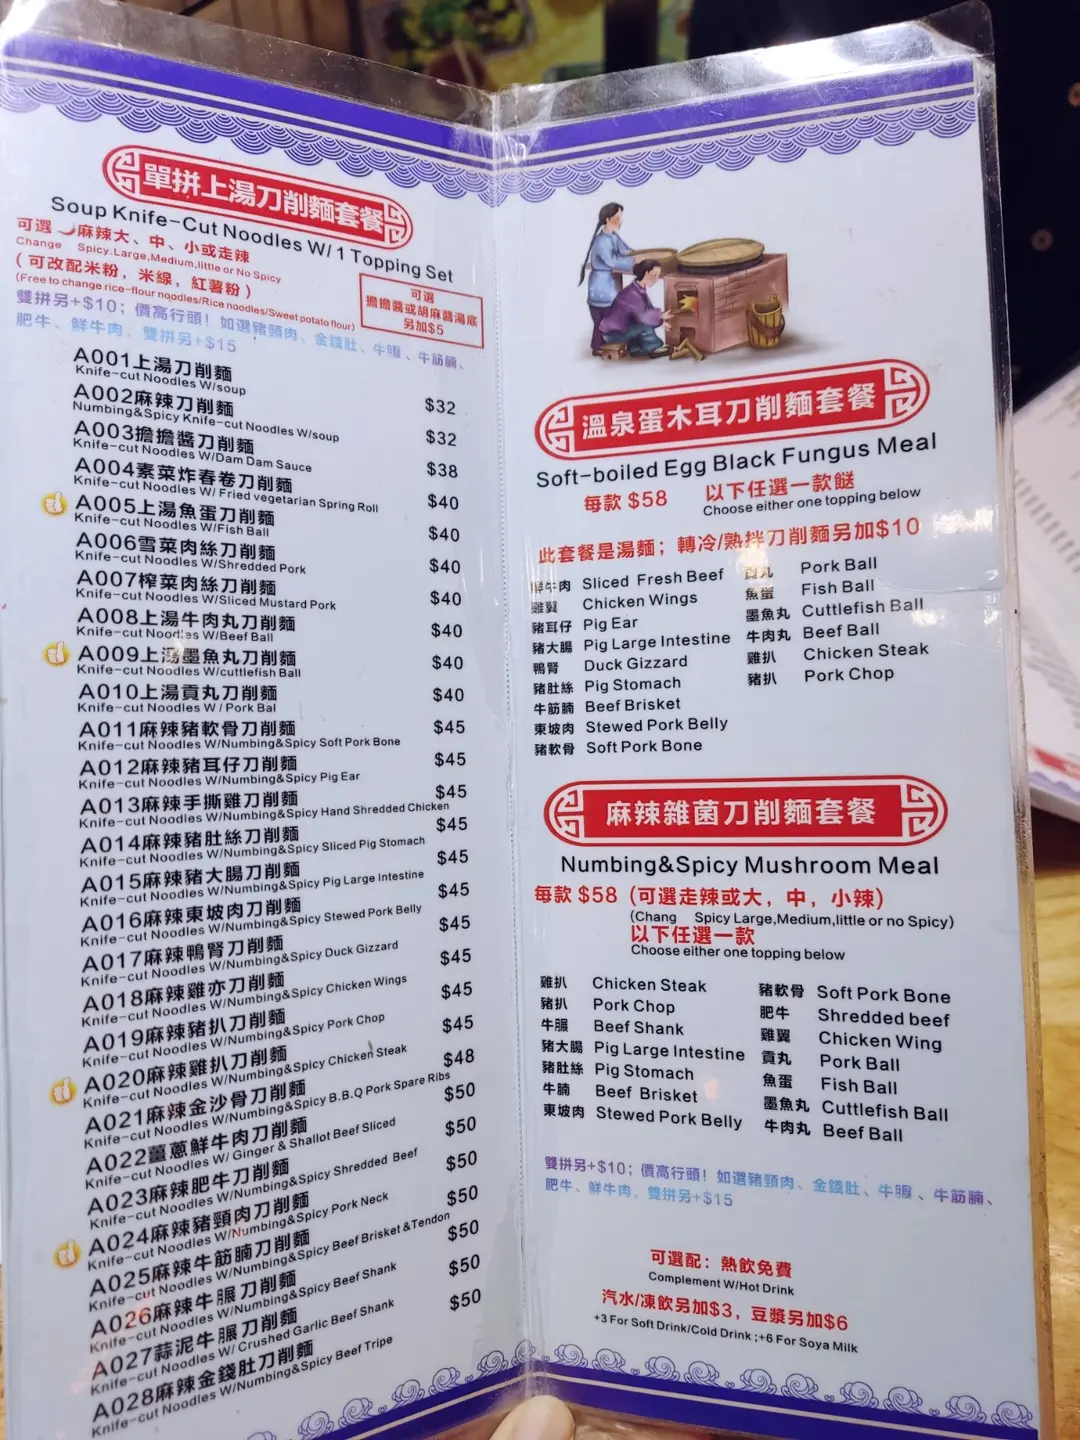 單拼上湯刀削麵套餐
Soup Knife-Cut Noodles W/1 Topping Set
可選 麻辣大、中、小或走辣
Change Spicy.Large,Medium,little or No Spicy
(可改配米粉，米線，紅薯粉)
(Free to change rice-flour noodles/Rice noodles/Sweet potato flour)
可選
擔擔醬或胡麻醬湯底
另加$5
雙拼另+$10；價高行頭！如選豬頸肉、金錢肚、牛𦟌、牛筋腩、
肥牛、鮮牛肉，雙拼另+$15
A001上湯刀削麵
Knife-cut Noodles W/soup
$32
A002麻辣刀削麵
Numbing&Spicy Knife-cut Noodles W/soup
$32
A003擔擔醬刀削麵
Knife-cut Noodles W/Dam Dam Sauce
$38
A004素菜炸春卷刀削麵
Knife-cut Noodles W/ Fried vegetarian Spring Roll
$40
A005上湯魚蛋刀削麵
Knife-cut Noodles W/Fish Ball
$40
A006雪菜肉絲刀削麵
Knife-cut Noodles W/Shredded Pork
$40
A007榨菜肉絲刀削麵
Knife-cut Noodles W/Sliced Mustard Pork
$40
A008上湯牛肉丸刀削麵
Knife-cut Noodles W/Beef Ball
$40
A009上湯墨魚丸刀削麵
Knife-cut Noodles W/cuttlefish Ball
$40
A010上湯貢丸刀削麵
Knife-cut Noodles W / Pork Bal
$40
A011麻辣豬軟骨刀削麵
Knife-cut Noodles W/Numbing&Spicy Soft Pork Bone
$45
A012麻辣豬耳仔刀削麵
Knife-cut Noodles W/Numbing&Spicy Pig Ear
$45
A013麻辣手撕雞刀削麵
Knife-cut Noodles W/Numbing&Spicy Hand Shredded Chicken
$45
A014麻辣豬肚絲刀削麵
Knife-cut Noodles W/Numbing&Spicy Sliced Pig Stomach
$45
A015麻辣豬大腸刀削麵
Knife-cut Noodles W/Numbing&Spicy Pig Large Intestine
$45
A016麻辣東坡肉刀削麵
Knife-cut Noodles W/Numbing&Spicy Stewed Pork Belly
$45
A017麻辣鴨腎刀削麵
Knife-cut Noodles W/Numbing&Spicy Duck Gizzard
$45
A018麻辣雞亦刀削麵
Knife-cut Noodles W/Numbing&Spicy Chicken Wings
$45
A019麻辣豬扒刀削麵
Knife-cut Noodles W/Numbing&Spicy Pork Chop
$45
A020麻辣雞扒刀削麵
Knife-cut Noodles W/Numbing&Spicy Chicken Steak
$45
A021麻辣金沙骨刀削麵
Knife-cut Noodles W/Numbing&Spicy B.B.Q Pork Spare Ribs
$48
A022薑蔥鮮牛肉刀削麵
Knife-cut Noodles W/ Ginger & Shallot Beef Sliced
$50
A023麻辣肥牛刀削麵
Knife-cut Noodles W/Numbing&Spicy Shredded Beef
$50
A024麻辣豬頸肉刀削麵
Knife-cut Noodles W/Numbing&Spicy Pork Neck
$50
A025麻辣牛筋腩刀削麵
Knife-cut Noodles W/Numbing&Spicy Beef Brisket &Tendon
$50
A026麻辣牛𦟌刀削麵
Knife-cut Noodles W/Numbing&Spicy Beef Shank
$50
A027蒜泥牛𦟌刀削麵
Knife-cut Noodles W/ Crushed Garlic Beef Shank
$50
A028麻辣金錢肚刀削麵
Knife-cut Noodles W/Numbing&Spicy Beef Tripe
$50
溫泉蛋木耳刀削麵套餐
Soft-boiled Egg Black Fungus Meal
每款 $58 以下任選一款餸
Choose either one topping below
此套餐是湯麵；轉冷/熟拌刀削麵另加$10
鮮牛肉 Sliced Fresh Beef
雞翼 Chicken Wings
豬耳仔 Pig Ear
豬大腸 Pig Large Intestine
鴨腎 Duck Gizzard
豬肚絲 Pig Stomach
牛筋腩 Beef Brisket
東坡肉 Stewed Pork Belly
豬軟骨 Soft Pork Bone
貢丸 Pork Ball
魚蛋 Fish Ball
墨魚丸 Cuttlefish Ball
牛肉丸 Beef Ball
雞扒 Chicken Steak
豬扒 Pork Chop
麻辣雜菌刀削麵套餐
Numbing&Spicy Mushroom Meal
每款 $58 (可選走辣或大，中，小辣)
(Chang Spicy Large,Medium,little or no Spicy)
以下任選一款
Choose either one topping below
雞扒 Chicken Steak
豬扒 Pork Chop
牛𦟌 Beef Shank
豬大腸 Pig Large Intestine
豬肚絲 Pig Stomach
牛腩 Beef Brisket
東坡肉 Stewed Pork Belly
豬軟骨 Soft Pork Bone
肥牛 Shredded beef
雞翼 Chicken Wing
貢丸 Pork Ball
魚蛋 Fish Ball
墨魚丸 Cuttlefish Ball
牛肉丸 Beef Ball
雙拼另+$10；價高行頭！如選豬頸肉、金錢肚、牛𦟌、牛筋腩、
肥牛、鮮牛肉，雙拼另+$15
可選配：熱飲免費
Complement W/Hot Drink
汽水/凍飲另加$3，豆漿另加$6
+3 For Soft Drink/Cold Drink ;+6 For Soya Milk